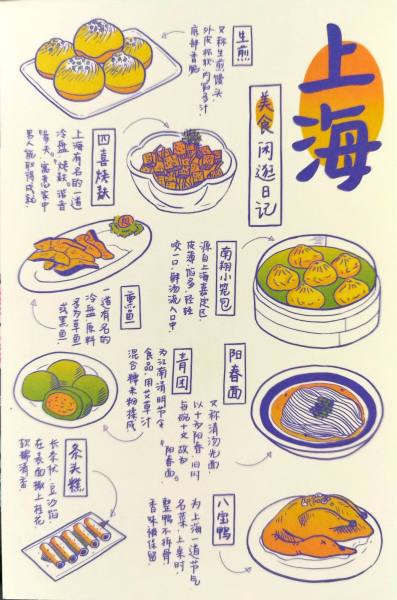 上海
美食闲逛日记
生煎
又称生煎馒头
外皮松软内馅多汁
底部香脆
四喜烤麸
上海有名的一道
冷盘,"烤麸"谐音
"靠夫",寓意家中
男人能取得成就.
南翔小笼包
源自上海嘉定区,
皮薄,馅多,轻轻
咬一口,鲜汤流入口中.
熏鱼
一道有名的
冷盘,原料
多为草鱼
或黑鱼.
阳春面
又称清汤光面
以十为阳春,旧时
每碗十文,故为
"阳春面".
青团
为江南清明节令
食品,用艾草汁
混合糯米粉揉成
条头糕
长条状,豆沙馅,
在表面撒上桂花
软糯清香
八宝鸭
为上海一道节气
名菜,上桌时,
整鸭不拆骨
香味被保留.